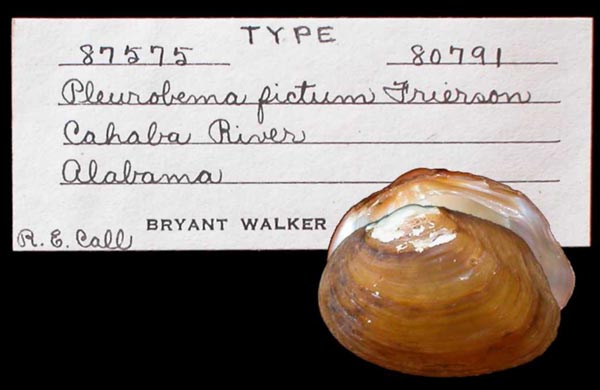 TYPE
87575 80791
Pleurobema fictum Frierson
Cahaba River
Alabama
BRYANT WALKER
R. E. Call